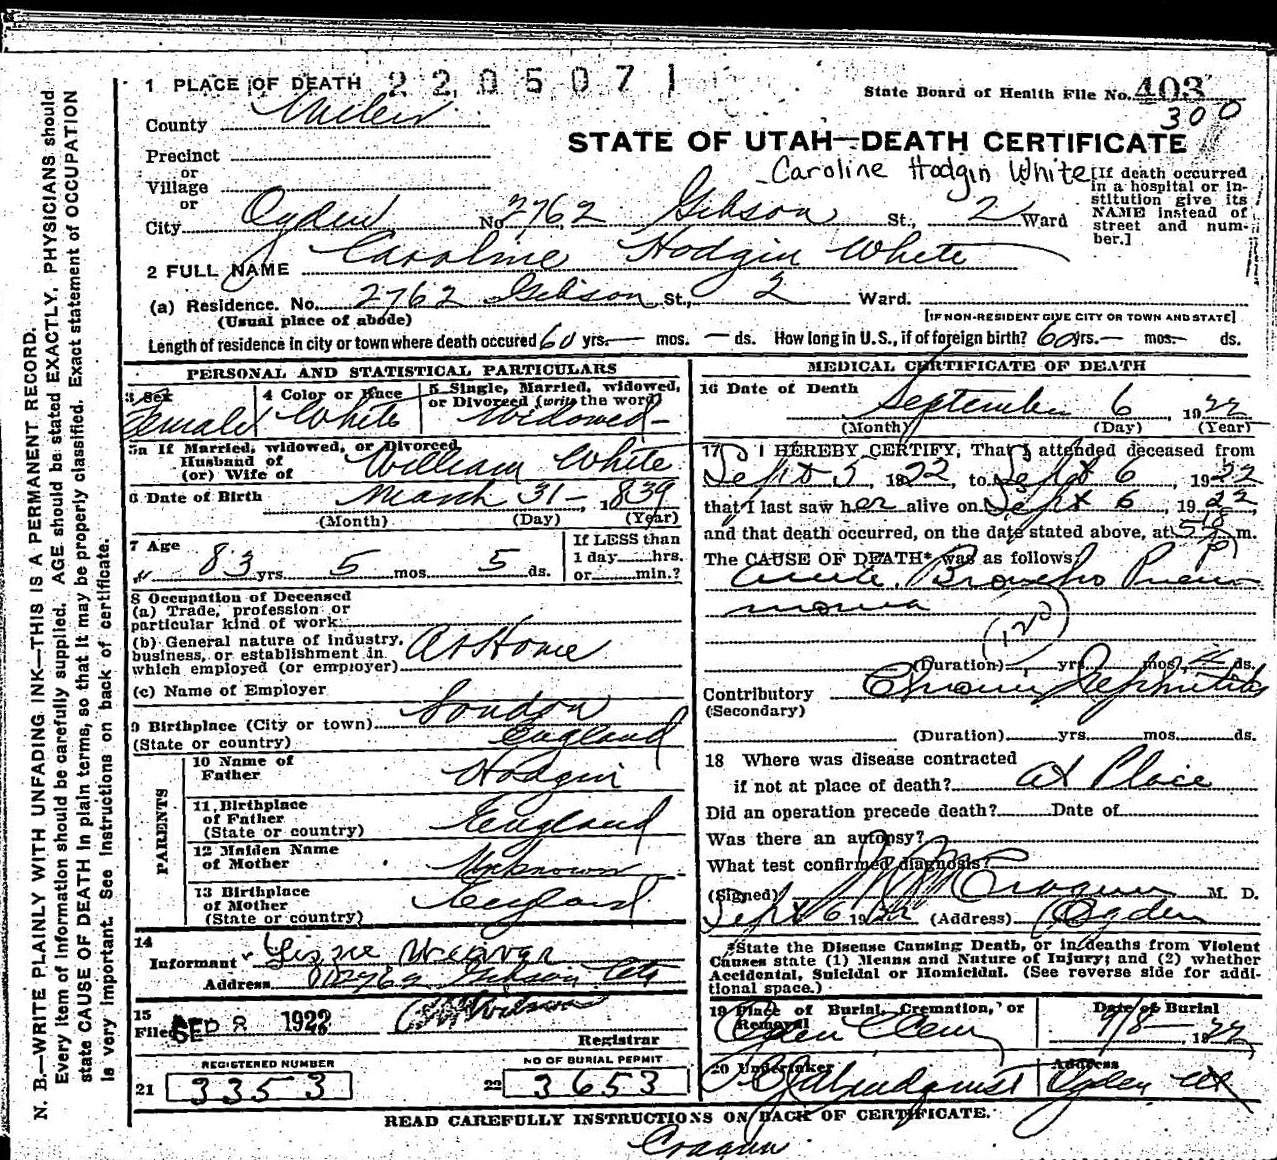 1 PLACE OF DEATH 2205071
State Board of Health File No. 403
300
County Weber
STATE OF UTAH—DEATH CERTIFICATE
Precinct
or
Village
or
Caroline Hodgin White
[If death occurred in a hospital or institution give its NAME instead of street and number.]
City Ogden No. 2762 Gibson St., 2 Ward
2 FULL NAME Caroline Hodgin White
(a) Residence. No. 2762 Gibson St., 2 Ward.
(Usual place of abode)
[IF NON-RESIDENT GIVE CITY OR TOWN AND STATE]
Length of residence in city or town where death occured 60 yrs.— mos. — ds. How long in U.S., if of foreign birth? 60 yrs.— mos.— ds.
PERSONAL AND STATISTICAL PARTICULARS
3 Sex
Female
4 Color or Race
White
5 Single, Married, widowed, or Divorced (write the word)
Widowed
5a If Married, widowed, or Divorced
Husband of
(or) Wife of William White
6 Date of Birth March 31 — 1839
(Month) (Day) (Year)
7 Age
83 yrs. 5 mos. 5 ds.
If LESS than
1 day hrs.
or min.?
8 Occupation of Deceased
(a) Trade, profession or
particular kind of work
(b) General nature of industry,
business, or establishment in
which employed (or employer) At Home
(c) Name of Employer
9 Birthplace (City or town) London
(State or country) England
PARENTS
10 Name of
Father Hodgin
11 Birthplace
of Father England
(State or country)
12 Maiden Name
of Mother Unknown
13 Birthplace
of Mother England
(State or country)
14
Informant
Address 2762 Gibson
15
Filed SEP 8 1922
Registrar
REGISTERED NUMBER
21 3353
NO OF BURIAL PERMIT
22 3653
MEDICAL CERTIFICATE OF DEATH
16 Date of Death
September 6, 1922
(Month) (Day) (Year)
17 I HEREBY CERTIFY, That I attended deceased from
Sept 5 1922, to Sept 6, 1922
that I last saw her alive on Sept 6, 1922,
and that death occurred, on the date stated above, at m.
The CAUSE OF DEATH* was as follows:
Acute Broncho Pneu
monia
(Duration) yrs. mos. ds.
Contributory Chronic Nephritis
(Secondary)
(Duration) yrs. mos. ds.
18 Where was disease contracted
if not at place of death? At Place
Did an operation precede death? Date of
Was there an autopsy?
What test confirmed diagnosis?
(Signed) Cragun M. D.
Sept 6 1922 (Address) Ogden
*State the Disease Causing Death, or in deaths from Violent
Causes state (1) Means and Nature of Injury; and (2) whether
Accidental, Suicidal or Homicidal. (See reverse side for addi-
tional space.)
19 Place of Burial, Cremation, or
Removal
Ogden Cem
Date of Burial
9/8 — 1922
20 Undertaker
Lindquist
Address
Ogden Ut
READ CAREFULLY INSTRUCTIONS ON BACK OF CERTIFICATE.
Cragun
N. B.—WRITE PLAINLY WITH UNFADING INK—THIS IS A PERMANENT RECORD.
Every item of information should be carefully supplied. AGE should be stated EXACTLY, PHYSICIANS should
state CAUSE OF DEATH in plain terms, so that it may be properly classified. Exact statement of OCCUPATION
is very important. See instructions on back of certificate.